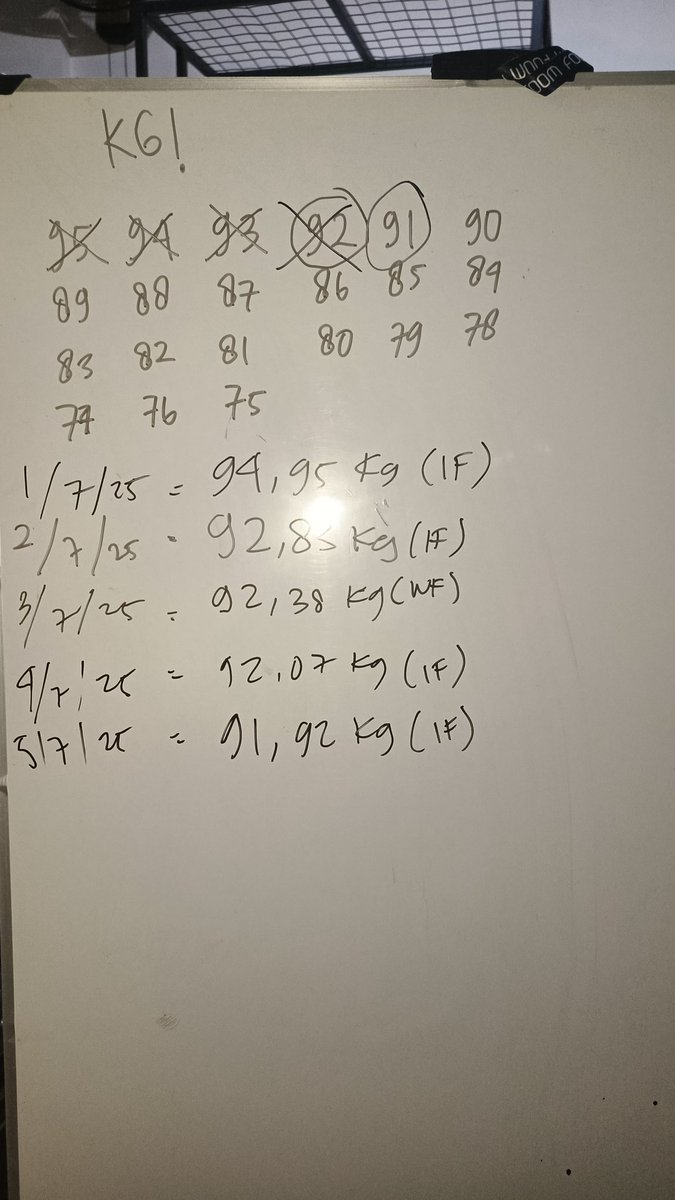 KG!
95 94 93 92 91 90
89 88 87 86 85 84
83 82 81 80 79 78
77 76 75
1/7/25 = 94,95 Kg (IF)
2/7/25 = 92,85 Kg (IF)
3/7/25 = 92,38 Kg (WF)
4/7/25 = 92,07 Kg (IF)
5/7/25 = 91,92 Kg (IF)